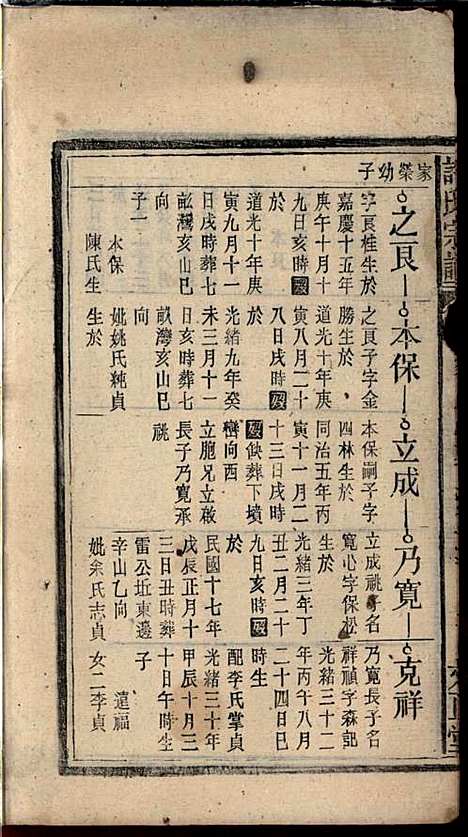 家榮幼子
之艮 本保 立成 乃寬 克祥
字艮桂生於
嘉慶十五年
庚午十月十
九日亥時歿
於
道光十年庚
寅九月十一
日戌時葬七
畝灣亥山巳
向
子一
本保
陳氏生
之艮子字金
勝生於
道光十年庚
寅八月二十
八日戌時歿
於
光緒九年癸
未三月十一
日亥時葬七
畝灣亥山巳
向
妣姚氏純貞
生於
本保嗣子字
四林生於
同治五年丙
寅十一月二
十三日戌時
歿缺葬下墳
巒向西
立胞兄立啟
長子乃寬承
祧
立成祧子名
寬心字保松
生於
光緒三年丁
丑二月二十
九日亥時歿
於
民國十七年
戊辰正月十
三日丑時葬
雷公坵東邊
辛山乙向
妣余氏志貞
乃寬長子名
祥禎字森記
光緒三十二
年丙午八月
二十四日巳
時生
配李氏掌貞
光緒三十年
甲辰十月三
十日午時生
子
遠福
女二李貞
氏宗譜